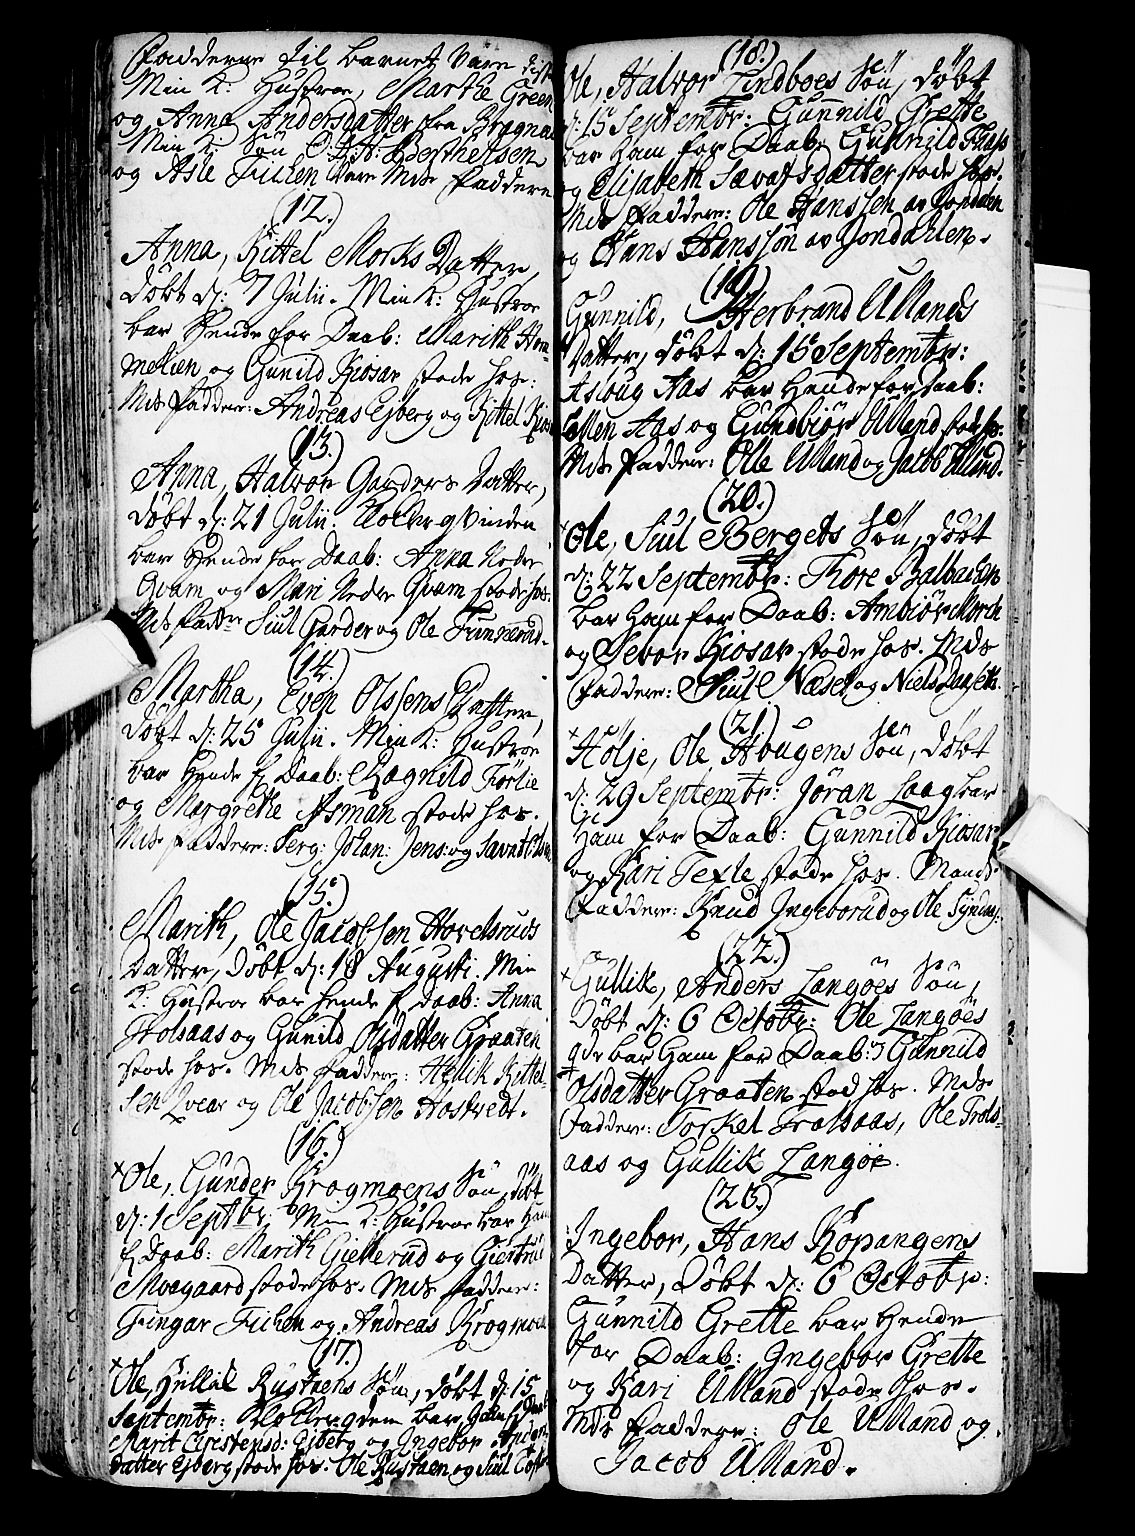 Fadderne til barnet vare
Min K: Hustroe, Marthe Green
og Anna Andersdatter fra Bragnæs
Min K: Søn C.J.H. Berthelsen
og Asle Fichen vare Mds Faddere
(12.)
Anna, Kittel Morks Datter,
døbt d: 7 Julii. Min K: Hustroe
bar Hende for Daab: Marith Hom-
melien og Gunild Kiosar stode hos:
Mds Faddere: Andreas Ejberg og Kittel Kios
(13.)
Anna, Halvor Garders Datter,
døbt d: 21 Julii. Klochergvinden
bar Hende for Daab: Anna Neder
Qvam og Mari Neder Qvam stode hos.
Mds Fadder Siul Garder og Ole
(14.)
Martha, Even Olssens Datter,
døbt d: 25 Julii. Min K: Hustroe
bar Hende f Daab: Ragnild
og Margrethe Asman stode hos.
Mds Faddere: Serg: Johan: Jens: og
(15.)
Marith, Ole Jacobsen Hovelsruds
Datter, Døbt d: 18 Augusti. Min
K: Hustroe bar hende f Daab: Anna
Holsaas og Gunild Olsdatter Graaten
stode hos. Mds Faddere: Hellik Kittel-
sen Qvear og Ole Jacobsen Hostvedt.
(16.)
Ole, Gunder Krogmoens Søn, døbt
d: 1 Septbr: Min K: Hustroe bar Ham
f Daab: Marith Giellerud og Giertrud
Moegaard stode hos. Mds Faddere:
Fingar Fichen og Andreas Krogmoen
(17.)
Ole, Hellik Rustaens Søn, døbt d: 15
Septembr: Klocherqden bar Ham f Daab
Marit Christensd: Ejberg og Ingebor Anders
datter Ejberg stode hos. Ole Rustaen og Siul
(18.)
Ole, Halvor Lindboes Søn, døbt
d: 15 Septembr: Gunnild Grette
bar Ham for Daab: Gunnild
og Elisabeth Sævatsdatter stode hos.
Mds Faddere: Ole Hanssen av Jondalen
og Hans Hanssøn av Jondahlen.
(19.)
Gunnild, Herbrand Ullands
Datter, døbt d: 15 Septembr:
Asloug Aas bar Hende for Daab:
Ellen Aas og Gundbiør Ulland stode hos.
Mds Faddere: Olle Ulland og Jacob Ulland.
(20.)
Ole, Siul Bergets Søn, døbt
d: 22 Septembr: Thore Balbachen
bar Ham for Daab: Ambiør Morch
og Sebor Kiosar stode hos. Mds
Faddere: Siul Næset og Niels Daaseth.
(21.)
Hølje, Ole Haugens Søn, døbt
d: 29 Septembr: Jøran Laag bar
Ham for Daab: Gunnild Kiosar
og Kari Texle stode hos. Mands
Faddere: Knud Ingeborud og Ole
(22.)
Gullik, Anders Langöes Søn,
Døbt d: 6 Octobr: Ole Langöes
qde bar Ham for Daab: Gunnild
Olsdatter Graaten stod hos. Mds
Faddere: Torkel Trolsaas, Ole Trols-
aas og Gullik Langöe.
(23.)
Ingebor, Hans Kopangens
Datter, Døbt d: 6 Octobr:
Gunnild Grette bar Hende
for Daab: Ingebor Grette
og Kari Ulland stode hos.
Mds Faddere: Ole Ulland og
Jacob Ulland.